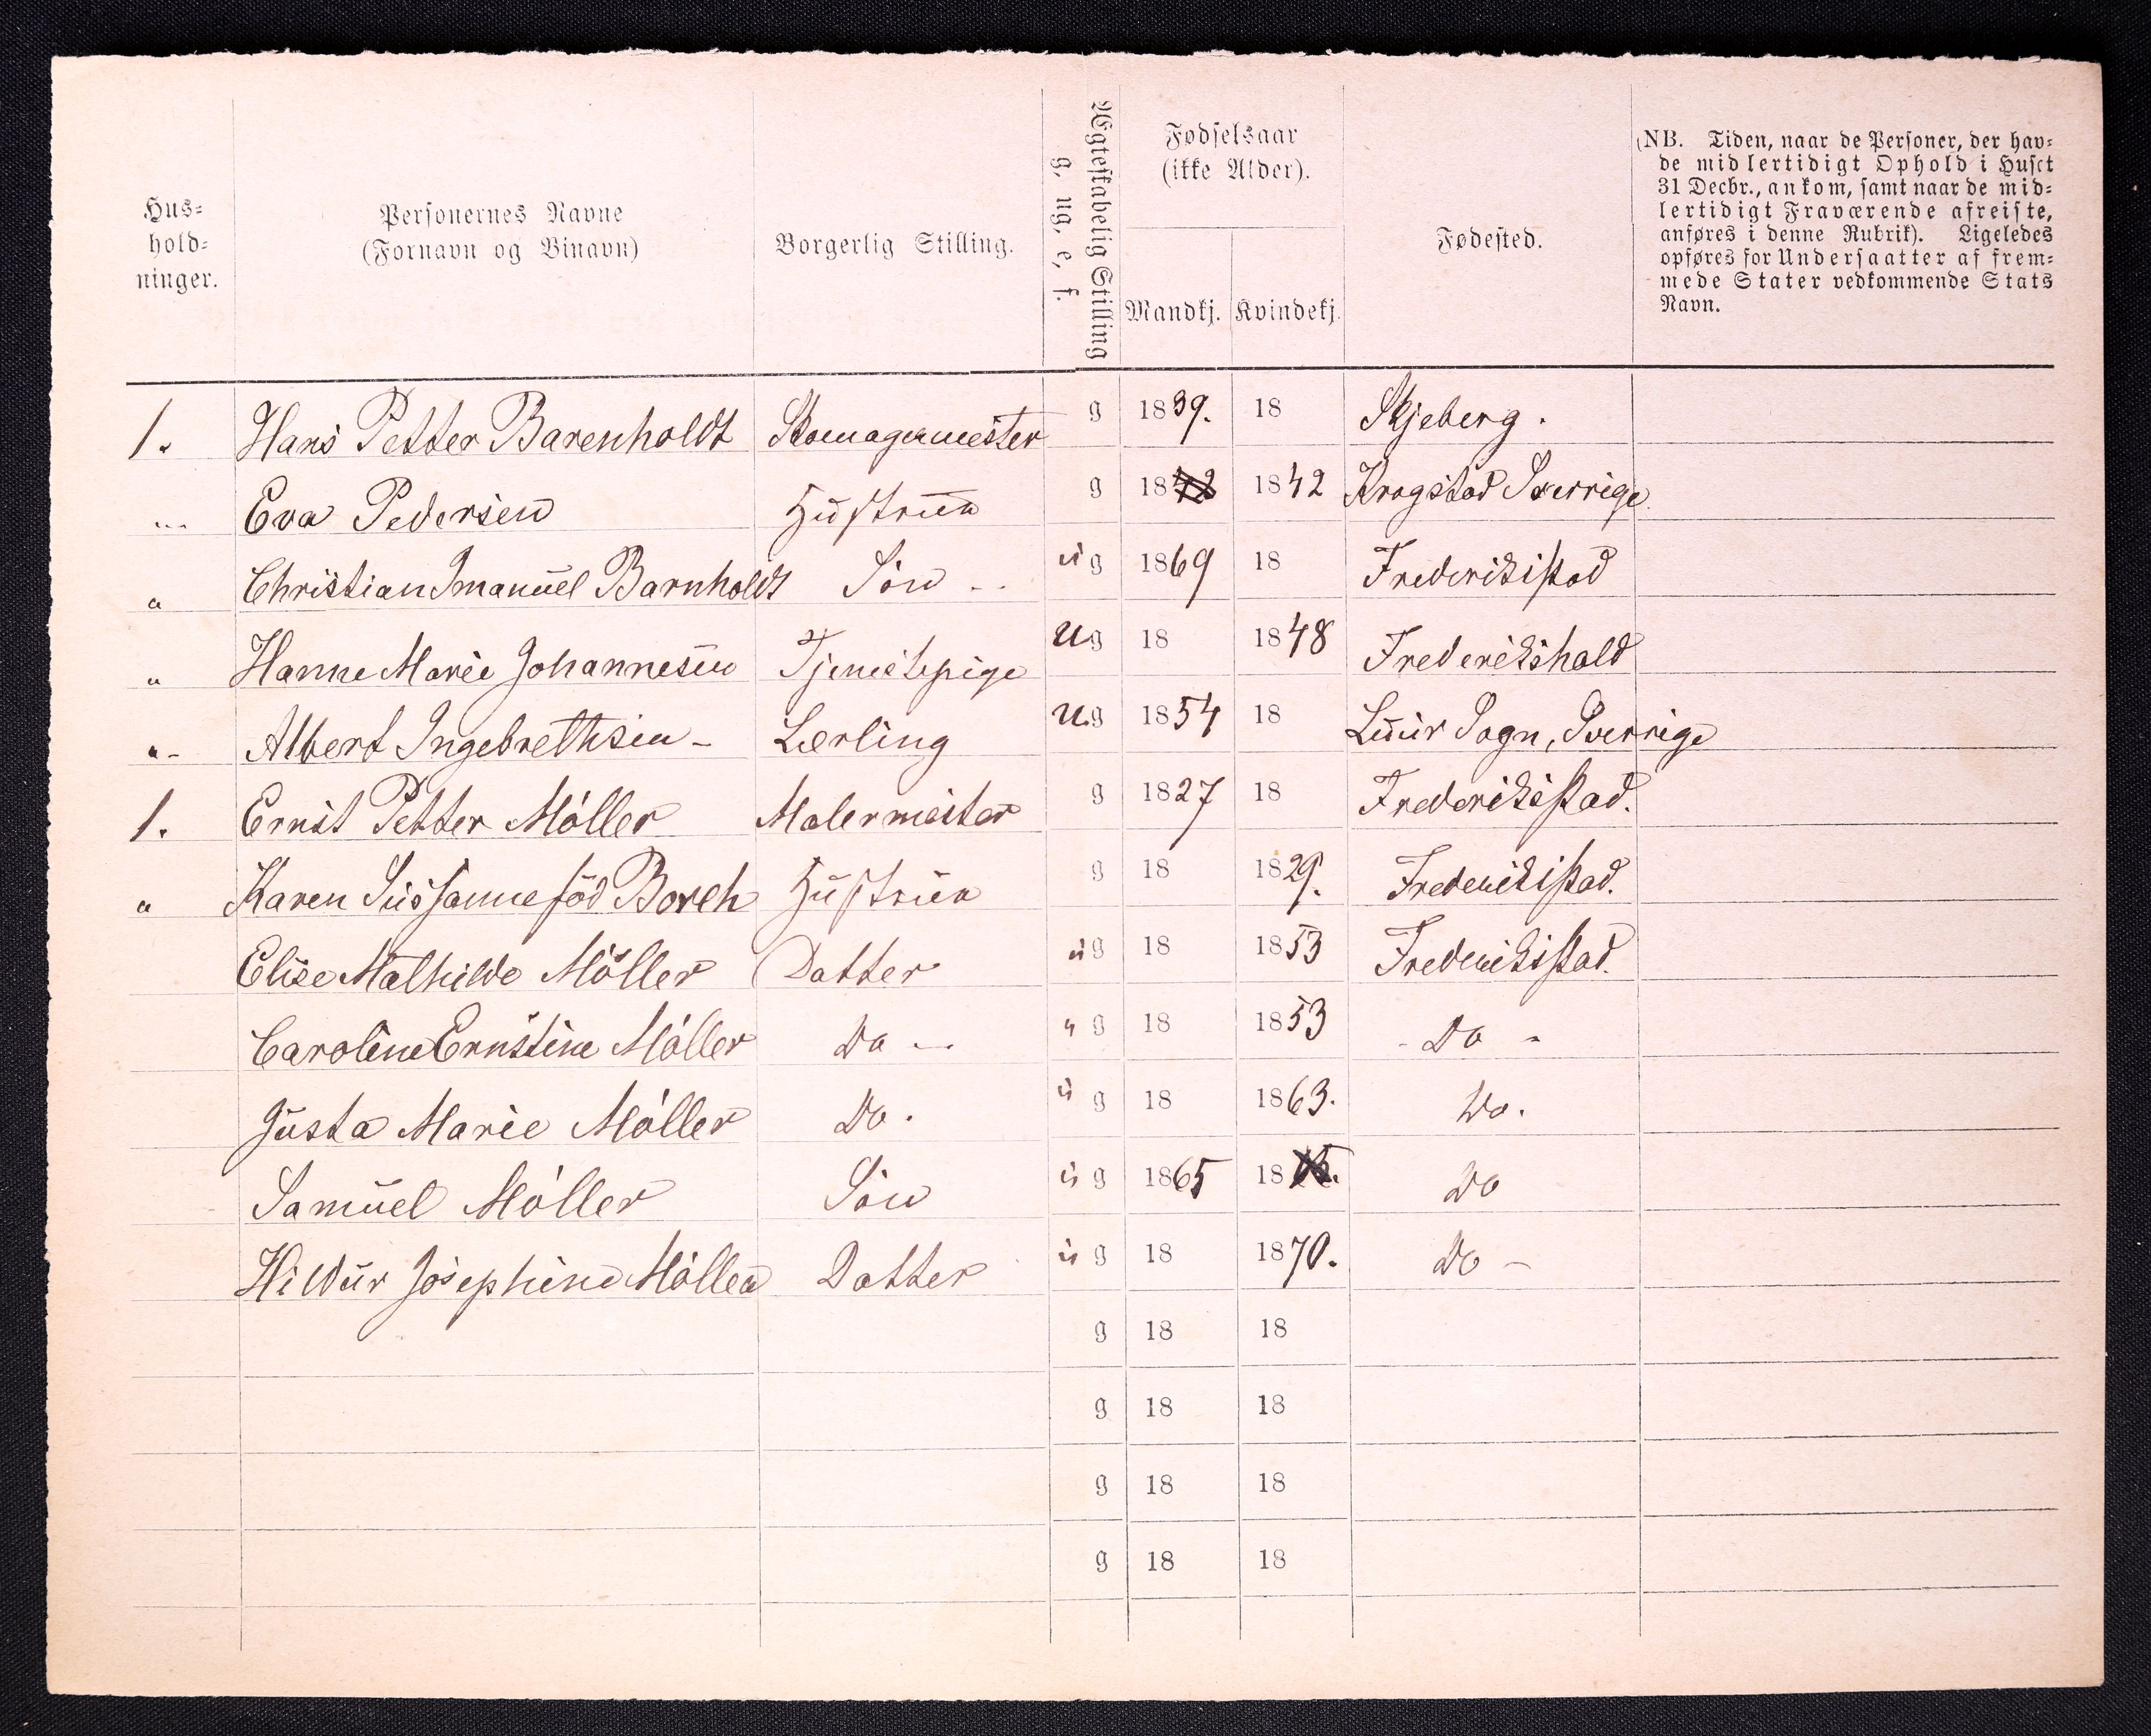 Hus-
hold-
ninger.
Personernes Navne
(Fornavn og Binavn)
Borgerlig Stilling.
Ægteskabelig Stilling
g, ug, e, f.
Fødselsaar
(ikke Alder).
Mandkj. Kvindekj.
Fødested.
(NB. Tiden, naar de Personer, der hav-
de midlertidigt Ophold i Huset
31 Decbr., ankom, samt naar de mid-
lertidigt Fraværende afreiste,
anføres i denne Rubrik). Ligeledes
opføres for Undersaatter af frem-
mede Stater vedkommende Stats
Navn.
1. Hans Petter Barenholdt Skomagermeister g 1839. 18 Skjeberg.
" Eva Pedersen Hustrue g 18 1842 Krogstad Sverrige
" Christian Imanuel Barnholdt Sön ug 1869 18 Frederiksstad
" Hanne Marie Johannesen Tjenestepige ug 18 1848 Frederikshald
" Albert Ingebrethsen Lærling ug 1854 18 Sogn, Sverrige
1. Ernst Petter Möller Malermeister g 1827 18 Frederiksstad.
" Karen Sussanne föd Borch Hustrue g 18 1829. Frederiksstad.
Elise Mathilde Möller Datter ug 18 1853 Frederiksstad.
Caroline Ernstine Möller Do ug 18 1853 Do
Justa Marie Möller Do. ug 18 1863. Do.
Samuel Möller Sön ug 1865 18 Do
Hildur Josephine Möller Datter ug 18 1870. Do
g 18 18
g 18 18
g 18 18
g 18 18